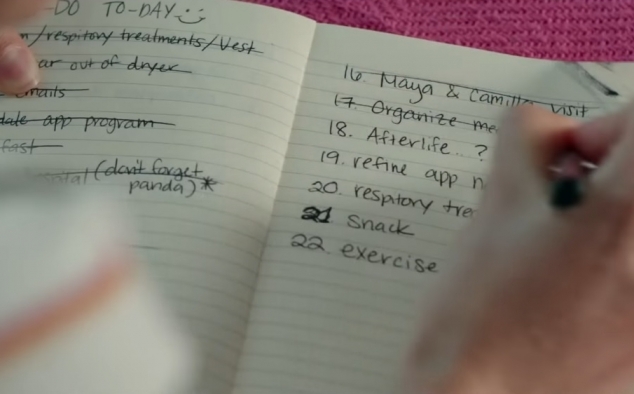 DO TO-DAY
/respitory treatments/Vest
out of dryer
emails
app program
fast
(don't forget
panda)*
16. Maya & Camilla visit
17. Organize
18. Afterlife...?
19. refine app
20. respitory
21 Snack
22 exercise